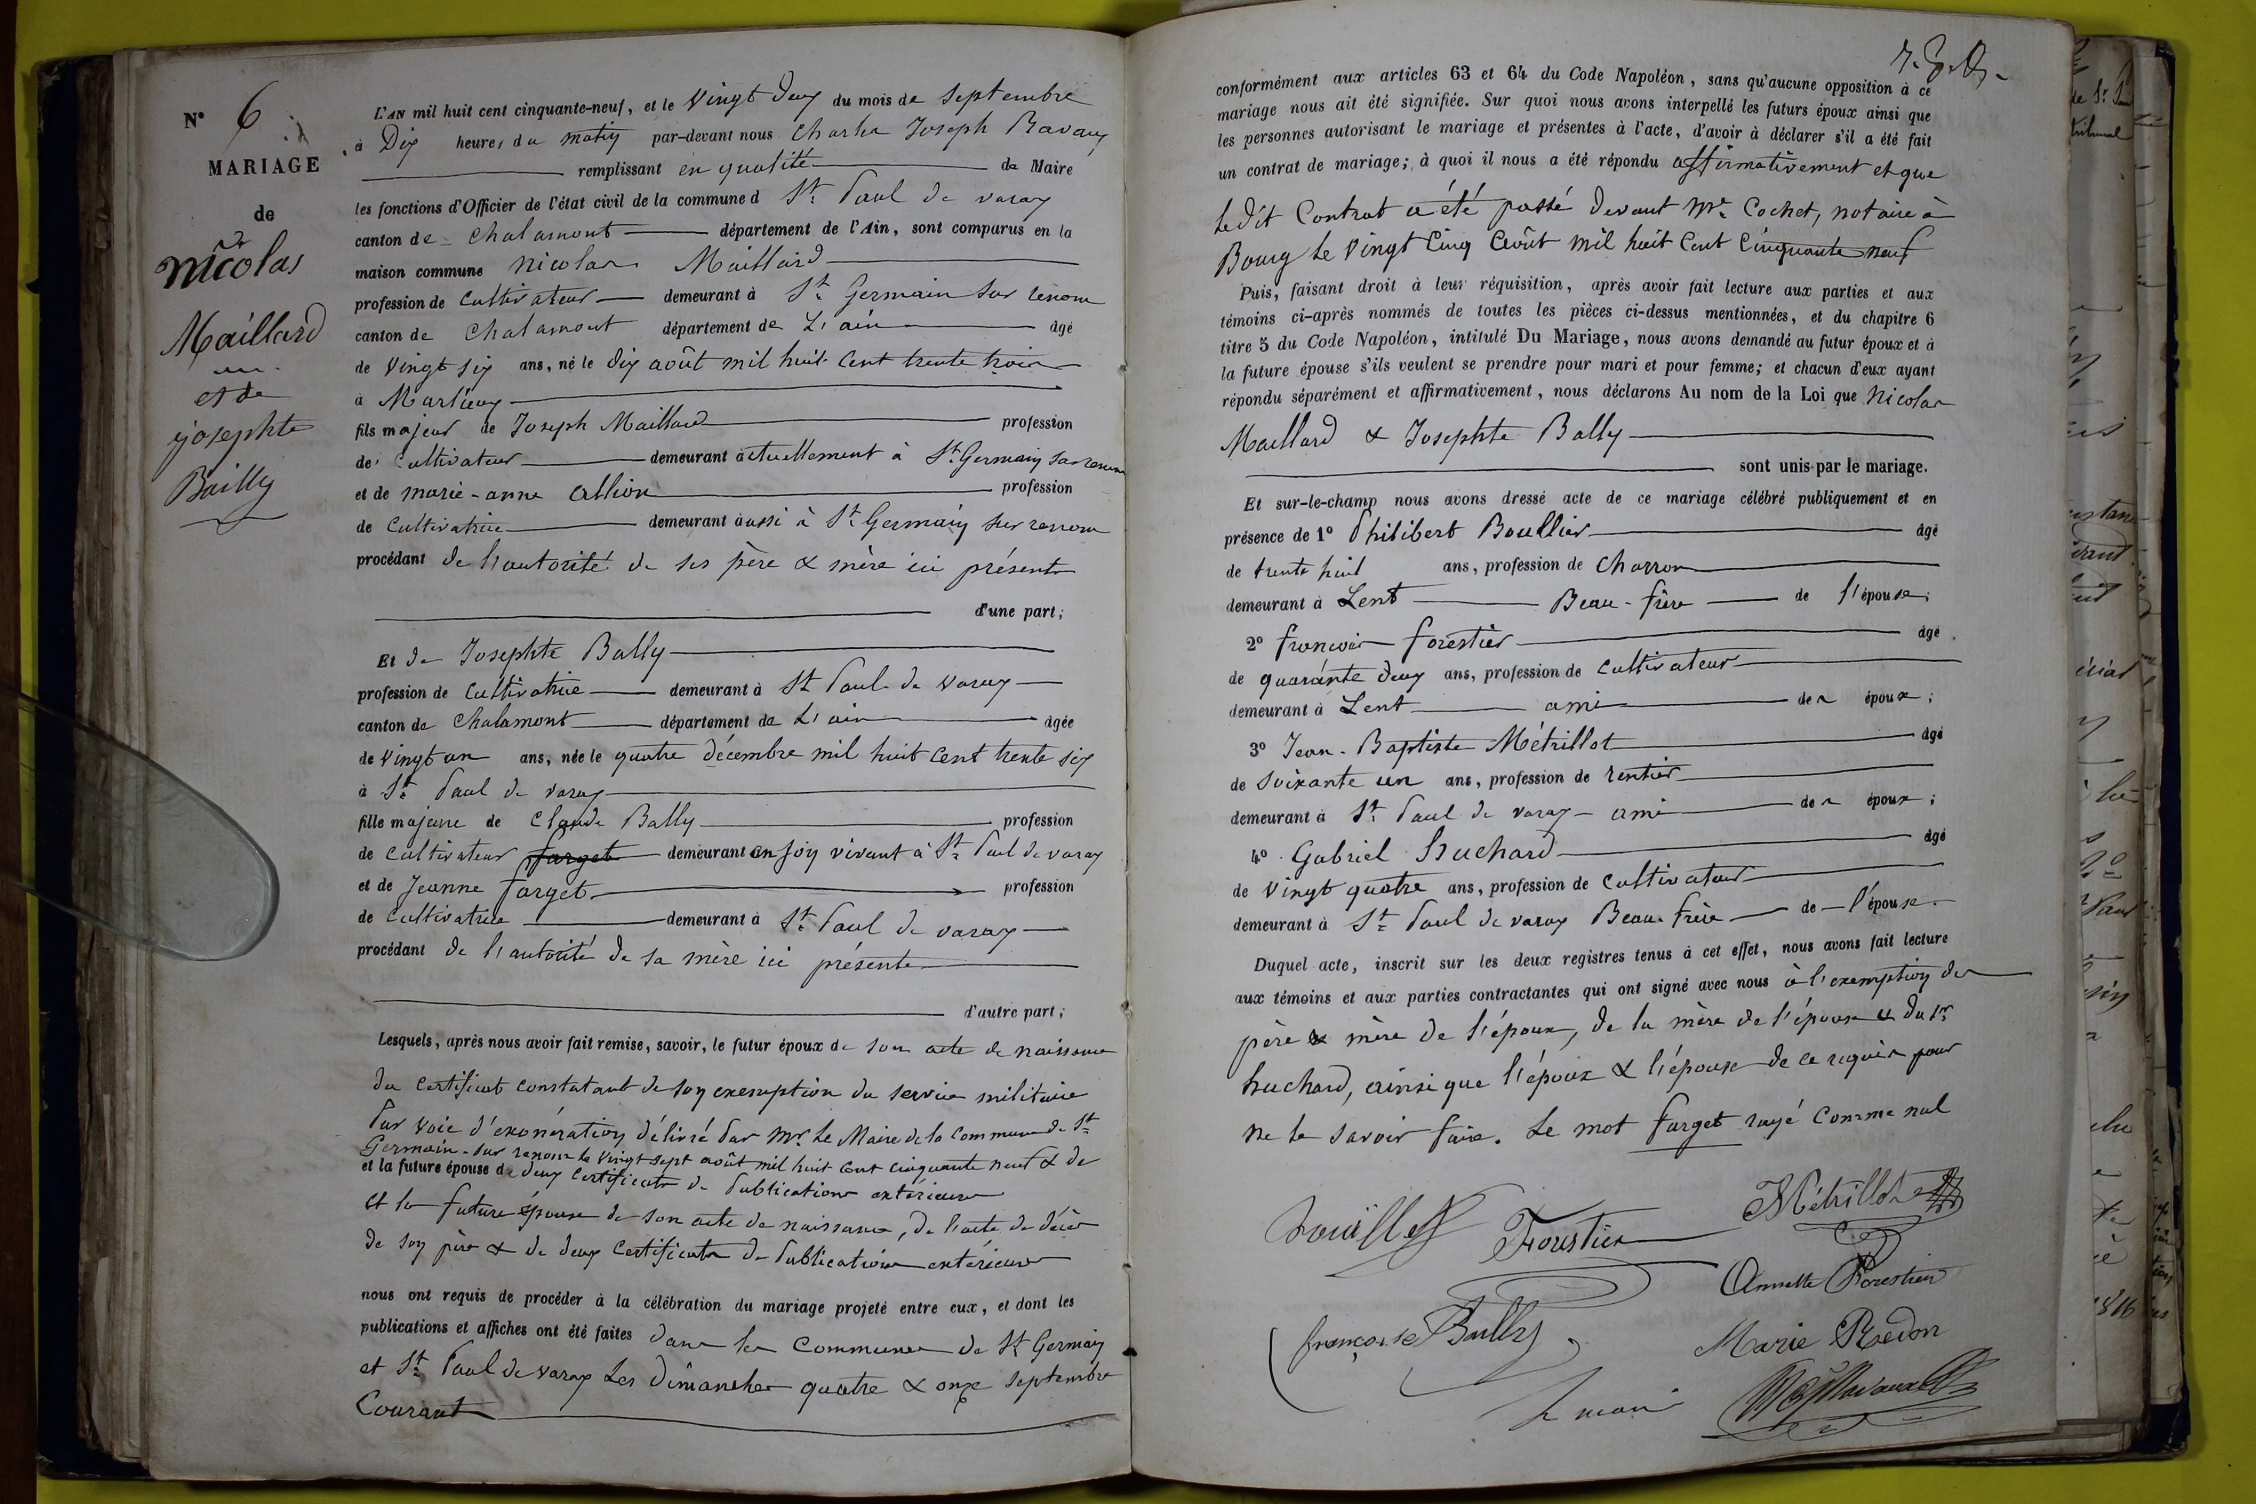 N° 6
MARIAGE
de
nicolas
Maillard
et de
josephte
Bailly
L'AN mil huit cent cinquante-neuf, et le Vingt deux du mois de Septembre
à Dix heures du matin par-devant nous Charles Joseph Ravaux
remplissant en qualité de Maire
les fonctions d'Officier de l'état civil de la commune d St Paul de varax
canton de Chalamont département de l'Ain, sont comparus en la
maison commune Nicolas Maillard
profession de Cultivateur demeurant à St Germain sur renom
canton de Chalamont département de L'ain âgé
de Vingt six ans, né le dix août mil huit Cent trente trois
à Marlieux
fils majeur de Joseph Maillard profession
de Cultivateur demeurant actuellement à St Germain sur renom
et de marie-anne Allion profession
de Cultivatrice demeurant aussi à St Germain sur renom
procédant de l'autorité de ses père & mère ici présents
d'une part;
Et de Josephte Bally
profession de Cultivatrice demeurant à St Paul de varax
canton de Chalamont département de L'ain âgée
de Vingt un ans, née le quatre décembre mil huit cent trente six
à St Paul de varax
fille majeure de Claude Bally profession
de Cultivateur farget demeurant en son vivant à St Paul de varax
et de Jeanne farget profession
de Cultivatrice demeurant à St Paul de varax
procédant de l'autorité de sa mère ici présente
d'autre part;
Lesquels, après nous avoir fait remise, savoir, le futur époux de son acte de naissance
du Certificat constatant de son exemption du service militaire
Par voie d'exonération délivré par Mr. Le Maire de la Commune de St
Germain-sur renom le vingt sept août mil huit cent cinquante neuf & de
et la future épouse de deux Certificats de Publications extérieures
et la future épouse de son acte de naissance, de l'acte de décès
de son père & de deux Certificats de Publications extérieures
nous ont requis de procéder à la célébration du mariage projeté entre eux, et dont les
publications et affiches ont été faites dans les Communes de St Germain
et St Paul de varax Les dimanches quatre & onze Septembre
Courant
conformément aux articles 63 et 64 du Code Napoléon, sans qu'aucune opposition à ce
mariage nous ait été signifiée. Sur quoi nous avons interpellé les futurs époux ainsi que
les personnes autorisant le mariage et présentes à l'acte, d'avoir à déclarer s'il a été fait
un contrat de mariage; à quoi il nous a été répondu affirmativement et que
Le dit Contrat a été passé devant Mr. Cochet, notaire à
Bourg le Vingt Cinq Août mil huit Cent Cinquante neuf
Puis, faisant droit à leur réquisition, après avoir fait lecture aux parties et aux
témoins ci-après nommés de toutes les pièces ci-dessus mentionnées, et du chapitre 6
titre 5 du Code Napoléon, intitulé Du Mariage, nous avons demandé au futur époux et à
la future épouse s'ils veulent se prendre pour mari et pour femme; et chacun d'eux ayant
répondu séparément et affirmativement, nous déclarons Au nom de la Loi que Nicolas
Maillard & Josephte Bally
sont unis par le mariage.
Et sur-le-champ nous avons dressé acte de ce mariage célébré publiquement et en
présence de 1° Philibert Boullier âgé
de trente huit ans, profession de Charron
demeurant à Lent Beau-frère de l'épouse;
2° françois forestier âgé
de quarante deux ans, profession de Cultivateur
demeurant à Lent ami des époux;
3° Jean-Baptiste Métrillot âgé
de soixante un ans, profession de rentier
demeurant à St Paul de varax ami des époux;
4° Gabriel huchard âgé
de Vingt quatre ans, profession de Cultivateur
demeurant à St Paul de varax Beau-frère de l'épouse.
Duquel acte, inscrit sur les deux registres tenus à cet effet, nous avons fait lecture
aux témoins et aux parties contractantes qui ont signé avec nous à l'exemption des
père & mère de l'époux, de la mère de l'épouse & du Sr
huchard, ainsi que l'époux & l'épouse de ce requis pour
ne le savoir faire. Le mot farget rayé comme nul
Métrillot
Forestier
Annette Forestier
françoise Bailly
Marie Redon
Le maire
Ravaux